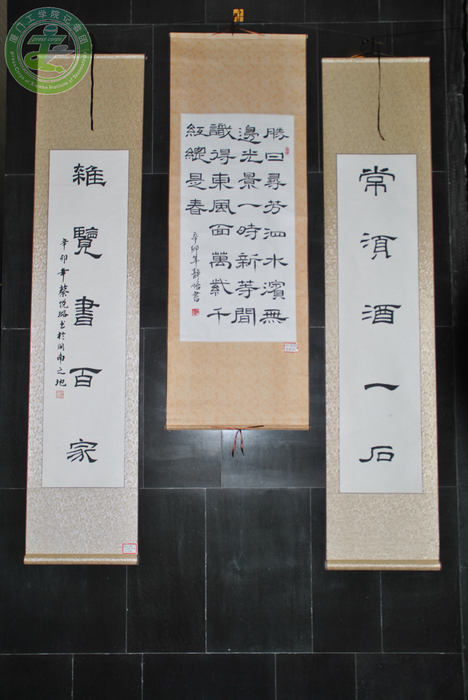 厦门工学院记者团
常湏酒一石
勝日尋芳泗水濱無
邊光景一時新等閒
識得東風面萬紫千
紅總是春
辛卯年靜怡書
雜覽書百家
辛卯年蔡悦璐书於闽南之地